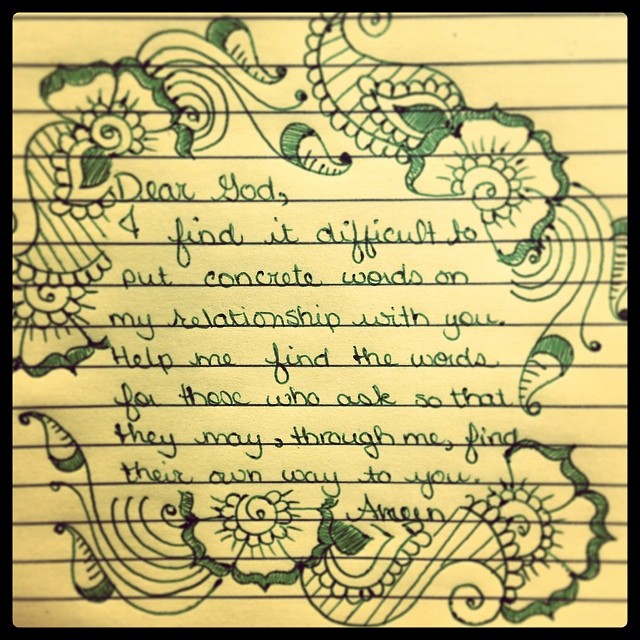 Dear God,
I find it difficult to
put concrete words on
my relationship with you.
Help me find the words
for those who ask so that
they may, through me, find
their own way to you.
Amen